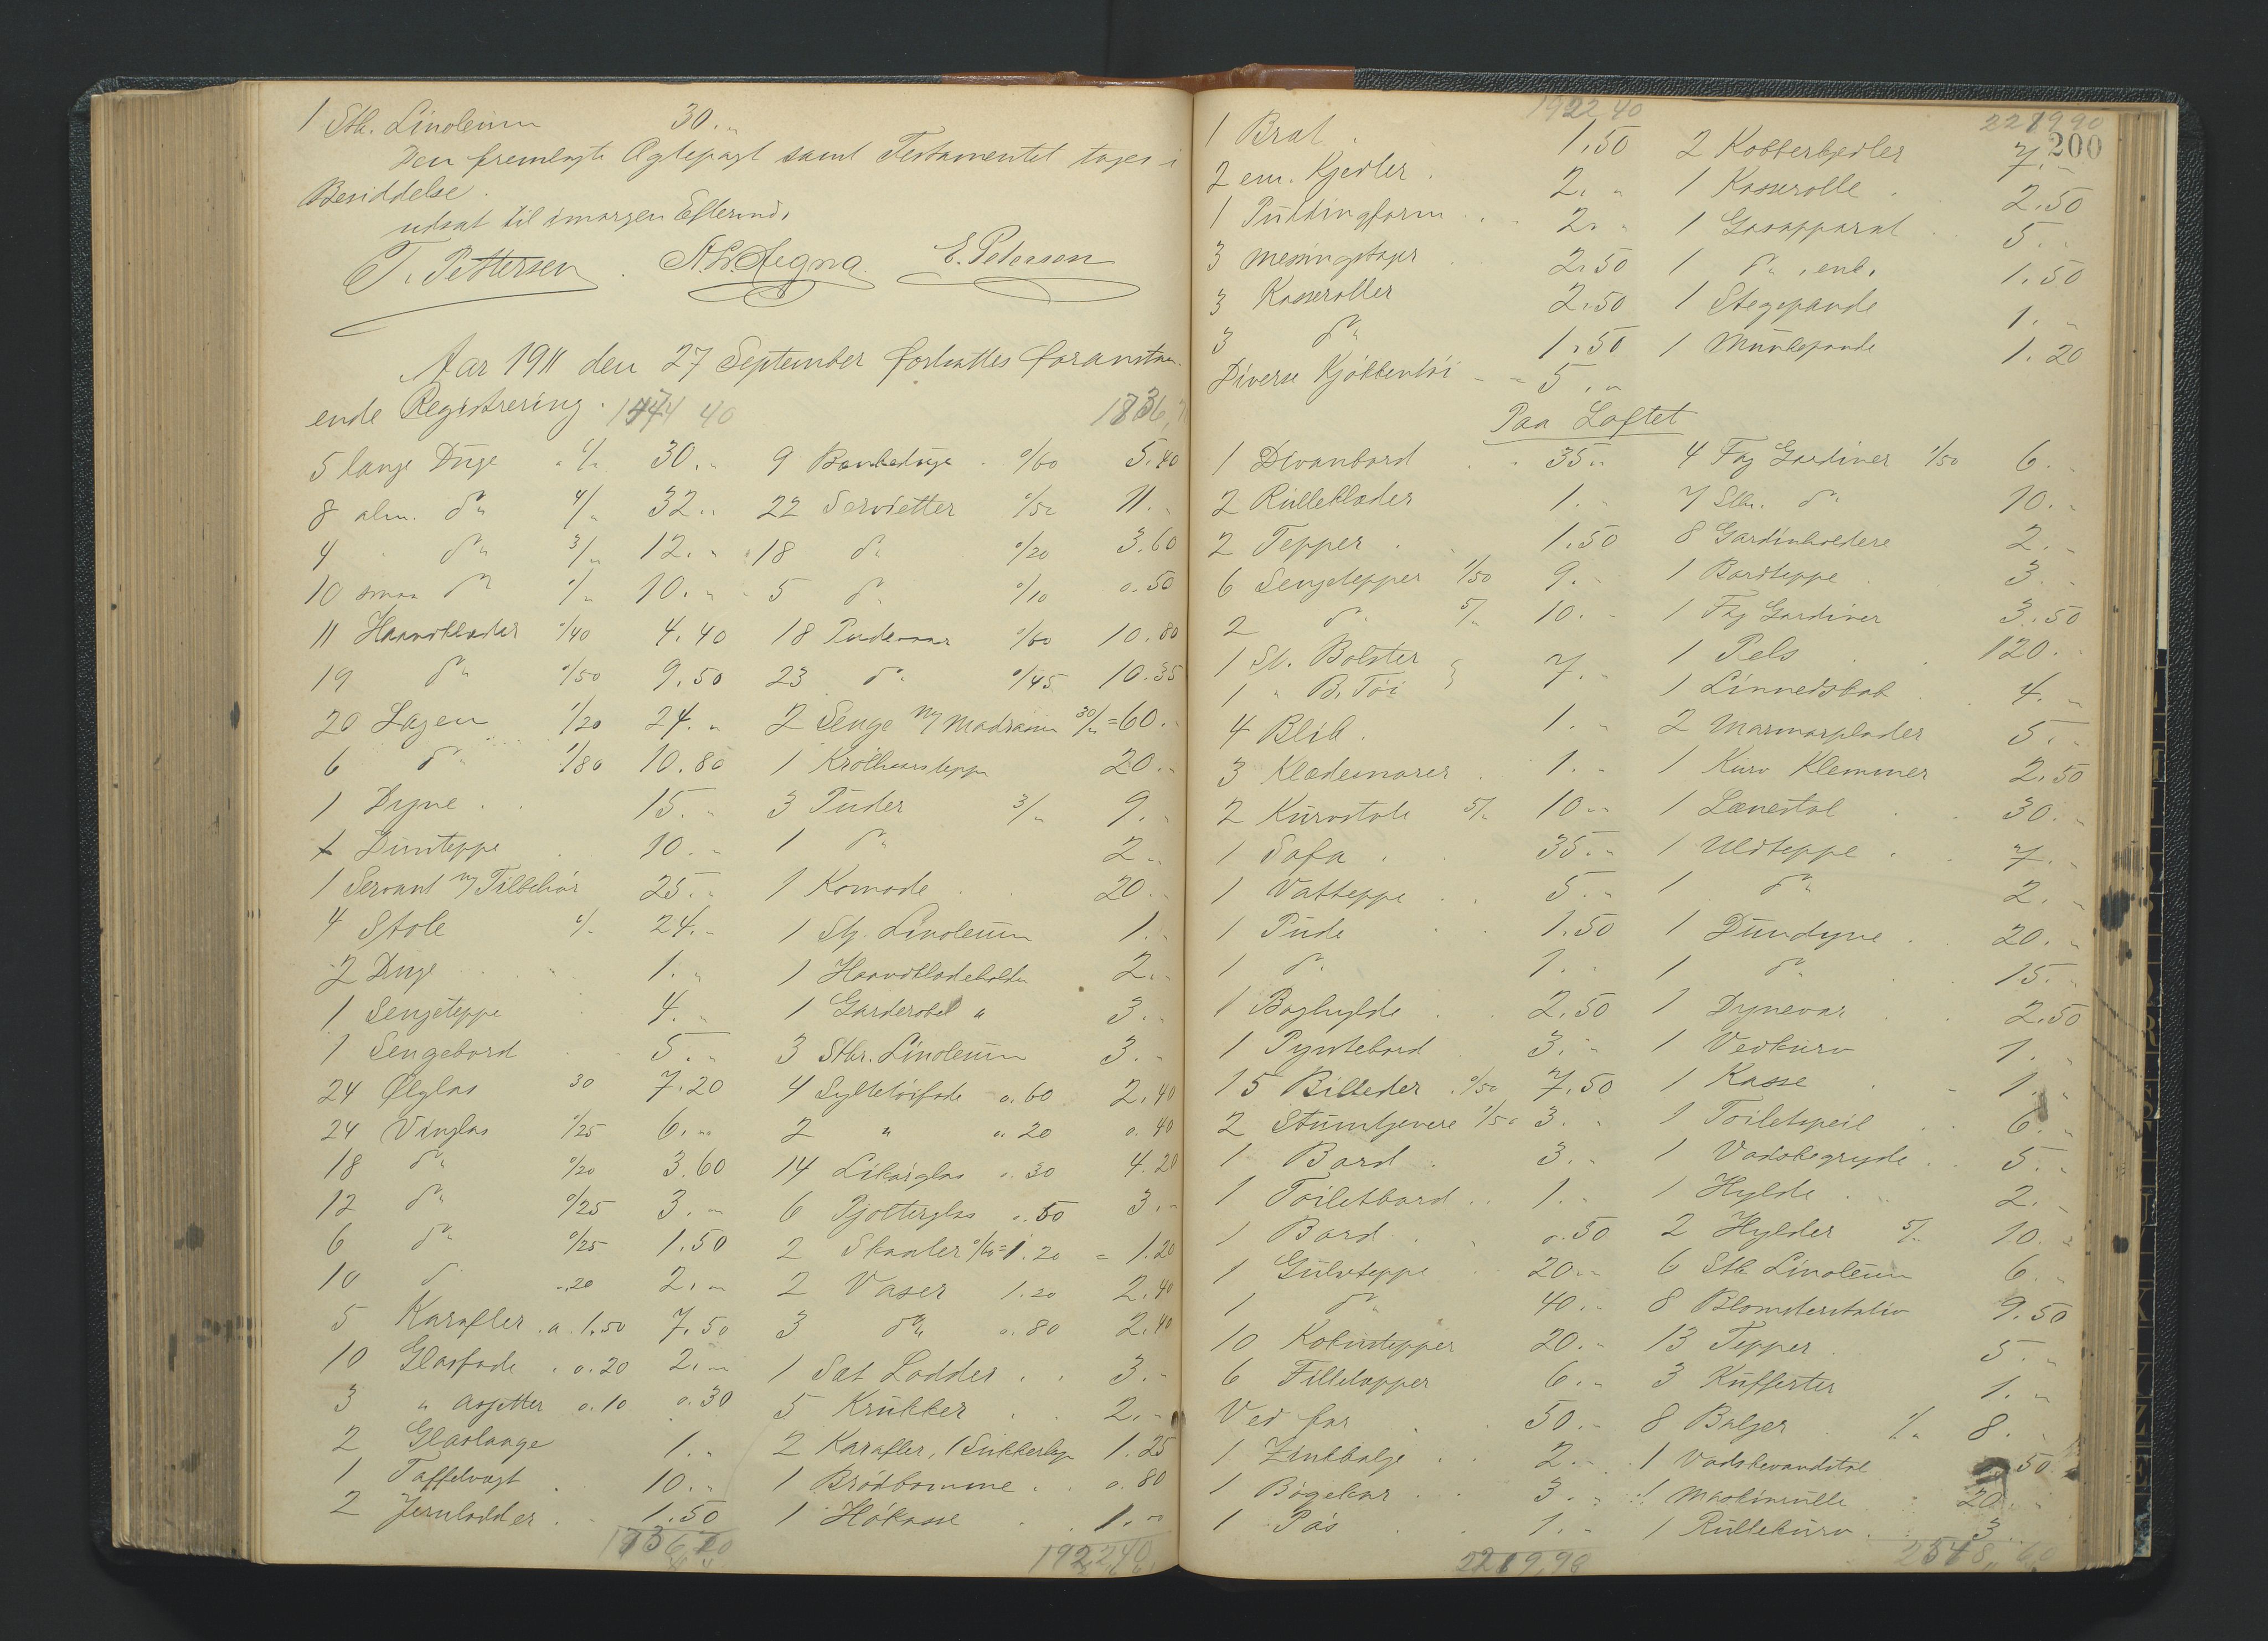 1 Stk. Linoleum 30.„
Den fremlagte Ægtepagt samt Testamentet tages i
Besiddelse.
udsat til imorgen Efterm.
T. Pettersen. E. Petersen
Aar 1911 den 27 September fortsattes foranstaa-
ende Registrering. 1836,
5 lange Duge 6/„ 30.„
8 alm. do 4/„ 32.„
4 „ do 3/„ 12.„
10 smaa do 1/„ 10.„
11 Haandklæder 0/40 4.40
19 do 0/50 9.50
20 Lagen 1/20 24.„
6 do 1/80 10.80
1 Dyne 15.„
1 Dunteppe 10.„
1 Servant m/ Tilbehör 25.„
4 Stole 6/„ 24.„
2 Duge 1.„
1 Sengeteppe 4.„
1 Sengebord 5.„
24 Ølglas 30 7.20
24 Vinglas 0/25 6.„
18 do 0/20 3.60
12 do 0/25 3.„
6 do 0/25 1.50
10 do „.20 2.„
5 Karafler a. 1.50 7.50
10 Glasfade o.20 2.„
3 „ Asjetter o.10 o.30
2 Glaslaage 1.„
1 Taffelvægt 10.„
2 Jernlodder 1.50
9 Bankeduge 0/60 5.40
22 Servietter 0/50 11.„
18 do 0/20 3.60
5 do 0/10 o.50
18 Pudevaar 0/60 10.80
23 do 0/45 10.35
2 Senge m/ Madrasser 30/„ = 60.„
1 Krølhaarsteppe 20.„
3 Puder 3/„ 9.„
1 do 2.„
1 Komode 20.„
1 Stk. Linoleum 1.„
1 Haandklædeholder 2.„
1 Garderobe „ 3.„
3 Stkr. Linoleum 3.„
4 Syltetöifade o.60 2.40
2 „ o.20 o.40
14 Likörglas o.30 4.20
6 Pjolterglas o.50 3.„
2 Skaaler 0/60=1.20 = 1.20
2 Vaser 1.20 2.40
3 do o.80 2.40
1 Sæt Lodder 3.„
5 Krukker 2.„
2 Karafler, 1 Sukker 1.25
1 Brödbomme o.80
1 Hökasse 1.„
1922,40
1922 40
1 Bræt 1.50
2 em. Kjedler 2.„
1 Puddingform 2.„
3 Messing 2.50
3 Kasseroller 2.50
3 do 1.50
Diverse Kjökkentöi 5.„
2219 90
200
2 Kobberkjedler 7.„
1 Kasserolle 2.50
1 Gasapparat 5.„
1 do, enk. 1.50
1 Stegepande 1.„
1 Munkepande 1.20
Paa Loftet
1 Divanbord 35.„
2 Rulleklæder 1.„
2 Tepper 1.50
6 Sengetepper 1/50 9.„
2 do 5/„ 10.„
1 St. Bolster
1 „ B. Töi 7.„
4 Blik 1.„
3 Klædesnorer 1.„
2 Kurvstole 5/„ 10.„
1 Sofa 35.„
1 Vatteppe 5.„
1 Pude 1.50
1 do 1.„
1 Boghylde 2.50
1 Pyntebord 3.„
15 Billeder 0/50 7.50
2 Stumtjenere 1/50 3.„
1 Bord 3.„
1 Toiletbord 1.„
1 Bord o.50
1 Gulvteppe 20.„
1 do 40.„
10 Kokustepper 20.„
6 Filletepper 6.„
Ved for 50.„
1 Zinkbalje 2.„
1 Bögekar 3.„
1 Pös 1.„
2219,90
4 Fag Gardiner 1/50 6.„
7 Stkr. do 10.„
8 Gardinholdere 2.„
1 Bordteppe 3.„
1 Fag Gardiner 3.50
1 Pels 120.„
1 Linnedskab 4.„
2 Marmorplader 5.„
1 Kurv Klemmer 2.50
1 Lænestol 30.„
1 Uldteppe 7.„
1 do 2.„
1 Dundyne 20.„
1 do 15.„
1 Dynevar 2.50
1 Vedkurv 1.„
1 Kasse 1.„
1 Toiletspeil 6.„
1 Vadskegryde 5.„
1 Hylde 2.„
2 Hylder 5/„ 10.„
6 Stk Linoleum 6.„
8 Blomsterstativ 9.50
13 Tepper 5.„
3 Kufferter 1.„
8 Baljer 1/„ 8.„
1 Vadskevandstol 50
1 Maskinrulle 20.„
1 Rullekurv 3